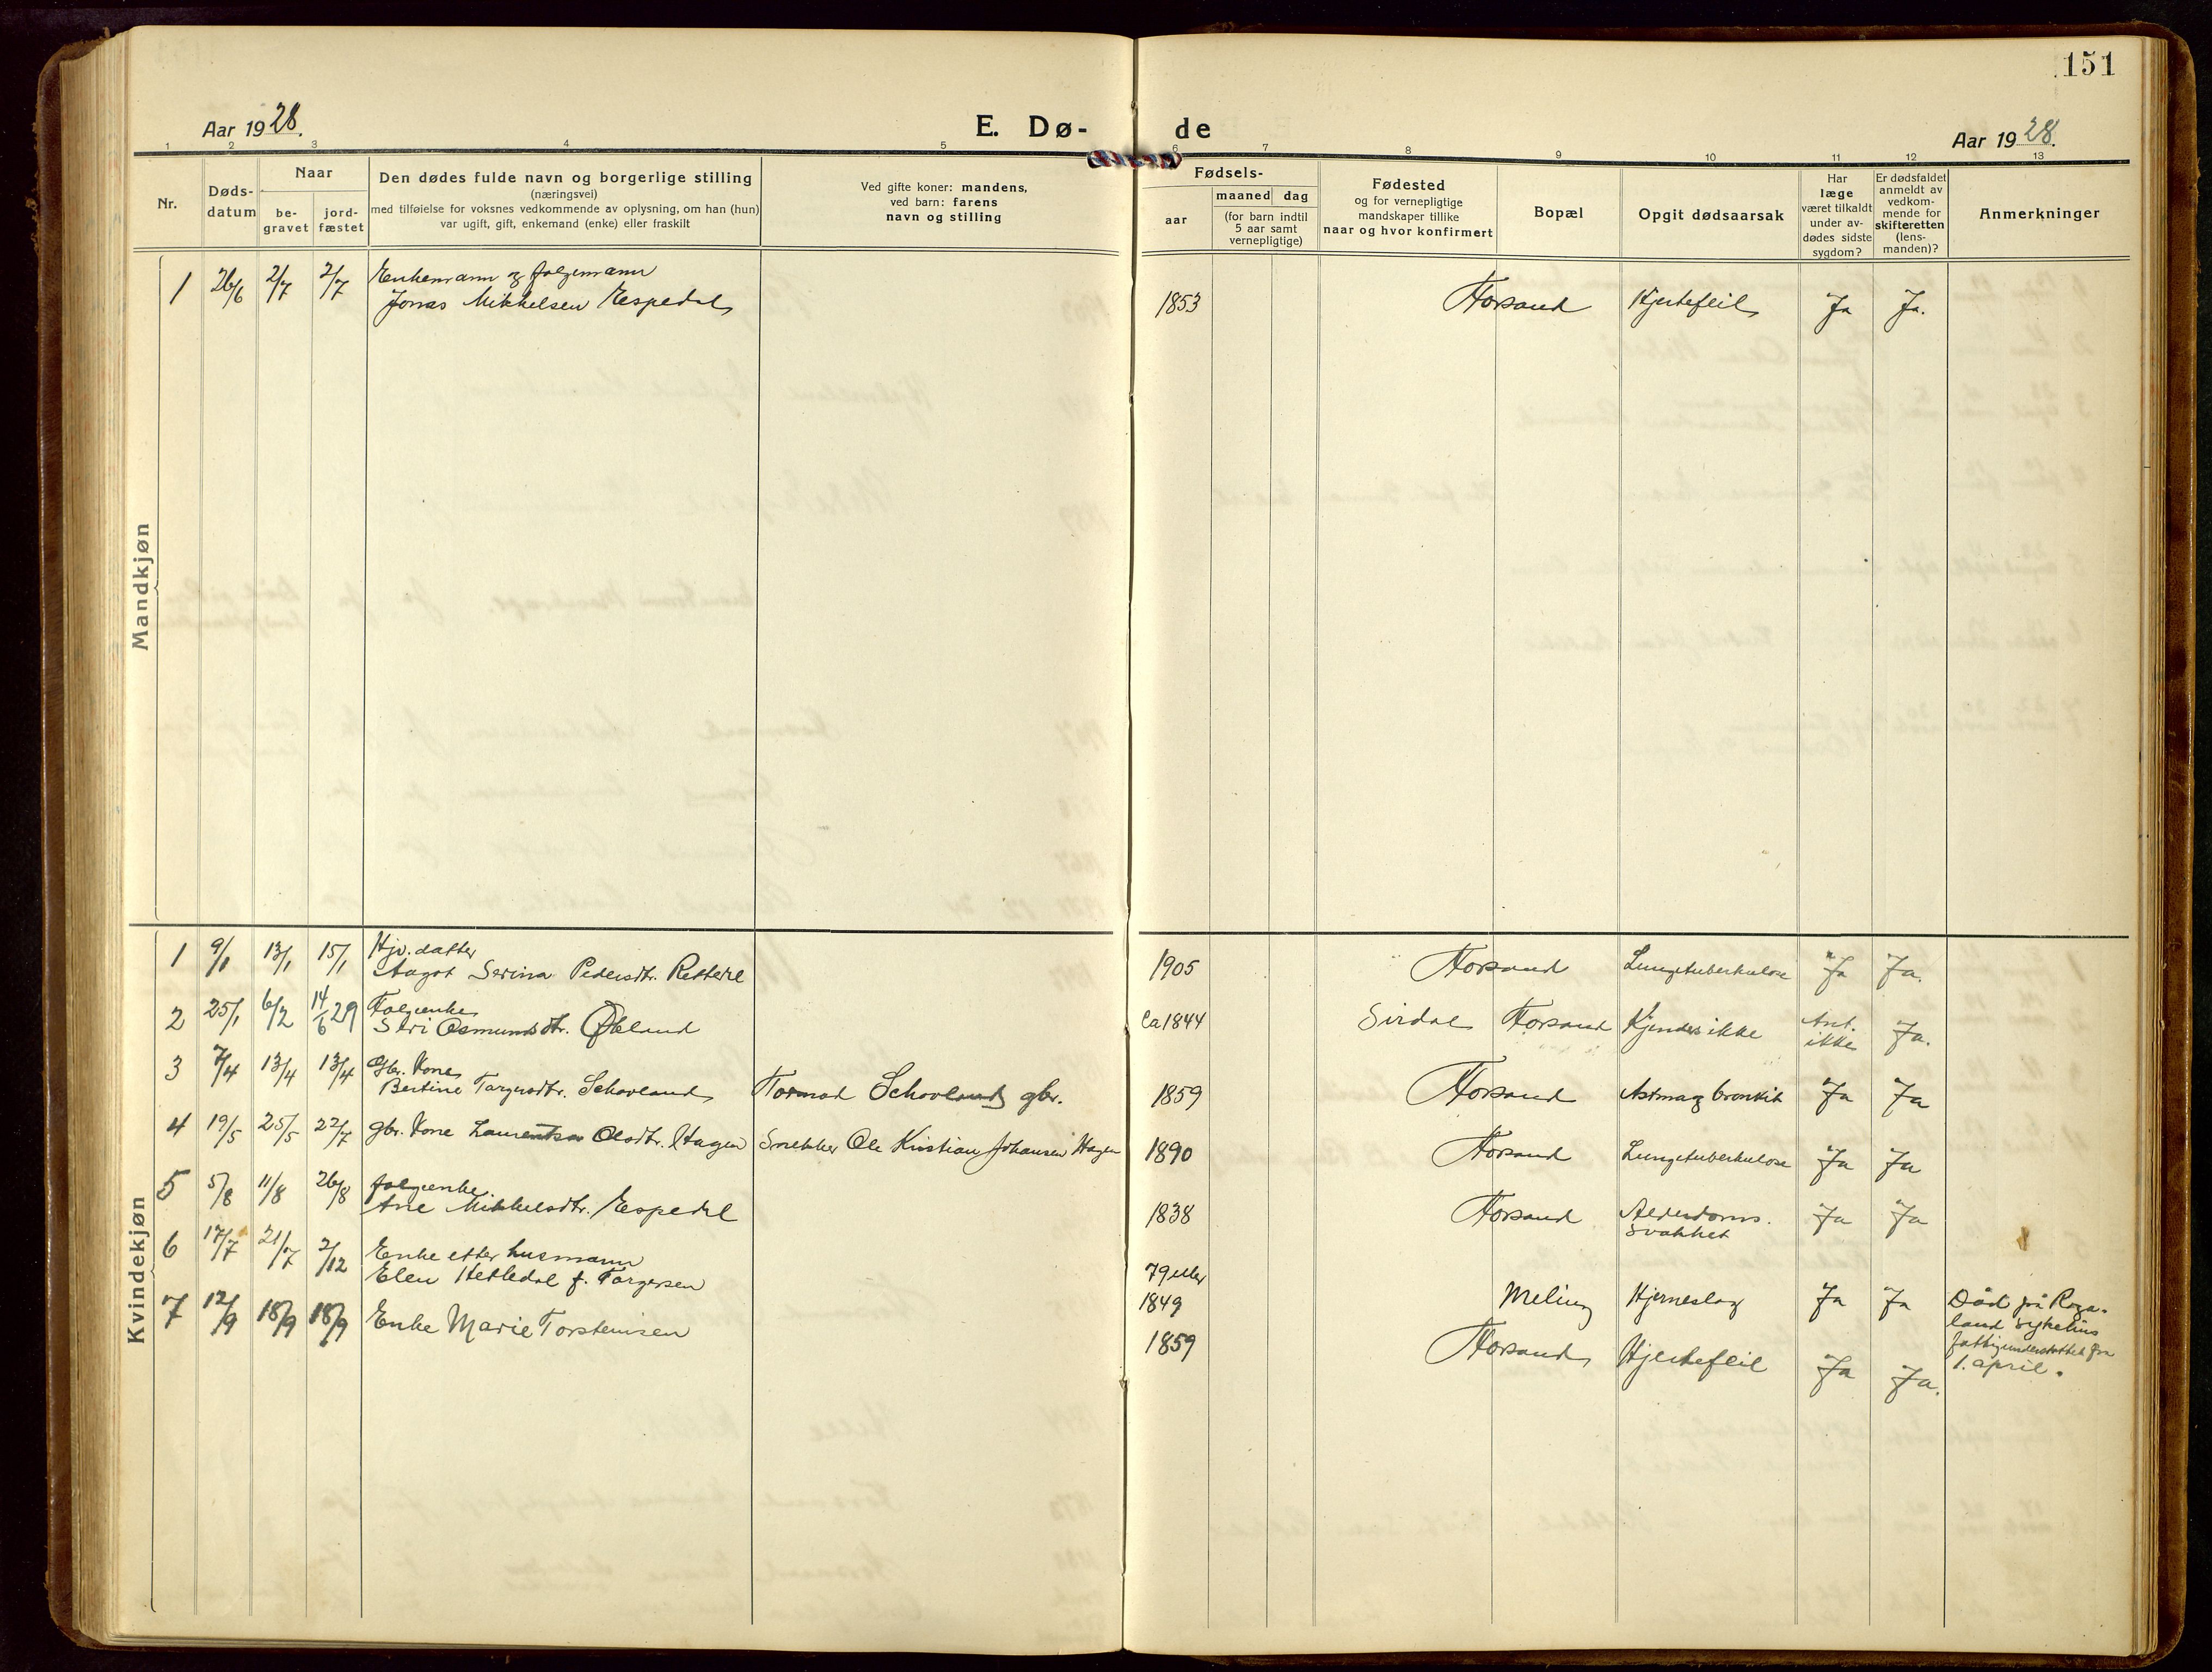 151
Aar 1928.
E. Dø-
de
Aar 1928.
1 2 3 4 5 6 7 8 9 10 11 12 13
Nr.
Døds-
datum
Naar
be-
gravet
jord-
fæstet
Den dødes fulde navn og borgerlige stilling
(næringsvei)
med tilføielse for voksnes vedkommende av oplysning, om han (hun)
var ugift, gift, enkemand (enke) eller fraskilt
Ved gifte koner: mandens,
ved barn: farens
navn og stilling
Fødsels-
aar
maaned dag
(for barn indtil
5 aar samt
vernepligtige)
Fødested
og for vernepligtige
mandskaper tillike
naar og hvor konfirmert
Bopæl
Opgit dødsaarsak
Har
læge
været tilkaldt
under av-
dødes sidste
sygdom?
Er dødsfaldet
anmeldt av
vedkom-
mende for
skifteretten
(lens-
manden)?
Anmerkninger
Mandkjøn
Enkemann og folgemann
1 26/6 2/7 2/7 Jonas Mikkelsen Espedal 1853 Forsand Hjertefeil Ja Ja.
Kvindekjøn
Hjv. datter
1 9/1 13/1 15/1 Aagot Serina Pedersdtr. Rettedal 1905 Forsand Lungetuberkulose Ja Ja.
Folgeenke
2 25/1 6/2 14/6 29 Siri Osmundsdtr. Økland Ca 1844 Sirdal Forsand Kjendes ikke Ant. ikke Ja.
Gbr. Kone
3 7/4 13/4 13/4 Bertine Torgersdtr. Schovland Tormod Schovland gbr. 1859 Forsand Astma og bronkit Ja Ja
4 19/5 25/5 22/7 gbr. Kone Laurentsa Olsdtr. Hagen Snekker Ole Kristian Johansen Hagen 1890 Forsand Lungetuberkulose Ja Ja
folgeenke
5 5/8 11/8 26/8 Ane Mikkelsdtr. Espedal 1838 Forsand Alderdoms. svakhet Ja Ja
6 17/7 21/7 2/12 Enke etter husmann
Elen Hetledal f. Torgersen 79 eller
1849 Meling Hjerneslag Ja Ja Død på Roga-
land sykehus
fattigunderstøttet fra
1. april.
7 12/9 18/9 18/9 Enke Marie Torsteinsen 1859 Forsand Hjertefeil Ja Ja.